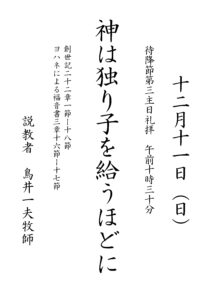 十二月十一日（日）
待降節第三主日礼拝　午前十時三十分
神は独り子を給うほどに
創世記二十二章一節ー十八節
ヨハネによる福音書三章十六節ー十七節
説教者　鳥井一夫牧師